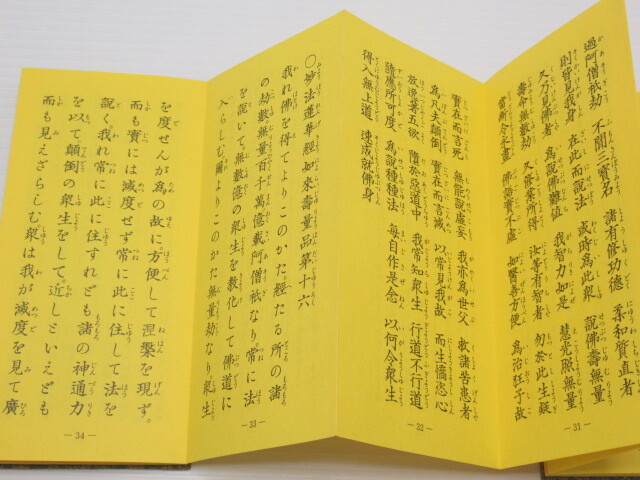 過阿僧祇劫　不聞三寶名　諸有修功德　柔和質直者
則皆見我身　在此而說法　或時爲此衆　說佛壽無量
久乃見佛者　爲說佛難値　我智力如是　慧光照無量
壽命無數劫　久修業所得　汝等有智者　勿於此生疑
當斷令永盡　佛語實不虛　如醫善方便　爲治狂子故
－31－
實在而言死　無能說虛妄　我亦爲世父　救諸苦患者
爲凡夫顚倒　實在而言滅　以常見我故　而生憍恣心
放逸著五欲　墮於惡道中　我常知衆生　行道不行道
隨應所可度　爲說種種法　每自作是念　以何令衆生
得入無上道　速成就佛身
－32－
○妙法蓮華經如來壽量品第十六
我れ佛を得てよりこのかた經たる所の諸
の劫數無量百千萬億載阿僧祇なり常に法
を說いて無數億の衆生を敎化して佛道に
入らしむ爾よりこのかた無量劫なり衆生
－33－
を度せんが爲の故に方便して涅槃を現ず。
而も實には滅度せず常に此に住して法を
說く我れ常に此に住すれども諸の神通力
を以て顚倒の衆生をして、近しといえども
而も見えざらしむ衆は我が滅度を見て廣
－34－